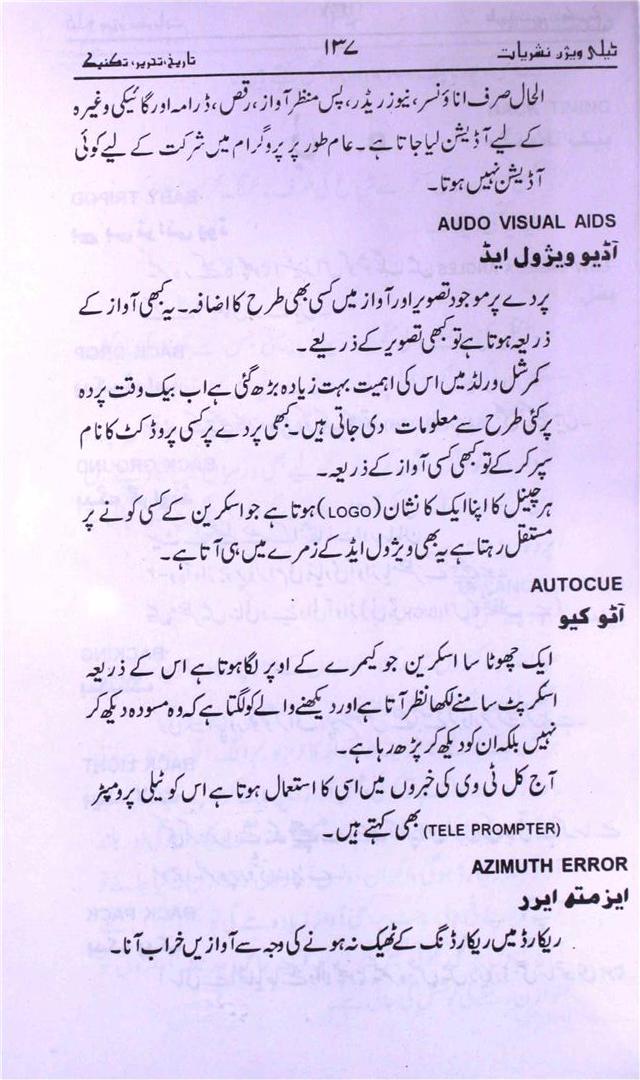 ٹیلی ویژن نشریات ۱۳۷ تاریخ، تحریر، تکنیک
الحال صرف اناؤنسر، نیوز ریڈر، پس منظر آواز، رقص، ڈرامہ اور گائیکی وغیرہ
کے لیے آڈیشن لیا جاتا ہے۔ عام طور پر پروگرام میں شرکت کے لیے کوئی
آڈیشن نہیں ہوتا۔
AUDO VISUAL AIDS
آڈیو ویژول ایڈ
پردے پر موجود تصویر اور آواز میں کسی بھی طرح کا اضافہ۔ یہ کبھی آواز کے
ذریعہ ہوتا ہے تو کبھی تصویر کے ذریعے۔
کمرشل ورلڈ میں اس کی اہمیت بہت زیادہ بڑھ گئی ہے اب بیک وقت پردہ
پر کئی طرح سے معلومات دی جاتی ہیں۔ کبھی پردے پر کسی پروڈکٹ کا نام
سپر کر کے تو کبھی کسی آواز کے ذریعہ۔
ہر چینل کا اپنا ایک کا نشان (LOGO) ہوتا ہے جو اسکرین کے کسی کونے پر
مستقل رہتا ہے یہ بھی ویژول ایڈ کے زمرے میں ہی آتا ہے۔
AUTOCUE
آٹو کیو
ایک چھوٹا سا اسکرین جو کیمرے کے اوپر لگا ہوتا ہے اس کے ذریعہ
اسکرپٹ سامنے لکھا نظر آتا ہے اور دیکھنے والے کو لگتا ہے کہ وہ مسودہ دیکھ کر
نہیں بلکہ ان کو دیکھ کر پڑھ رہا ہے۔
آج کل ٹی وی کی خبروں میں اسی کا استعمال ہوتا ہے اس کو ٹیلی پرومپٹر
(TELE PROMPTER) بھی کہتے ہیں۔
AZIMUTH ERROR
ایزمتھ ایرر
ریکارڈ میں ریکارڈنگ کے ٹھیک نہ ہونے کی وجہ سے آوازیں خراب آنا۔